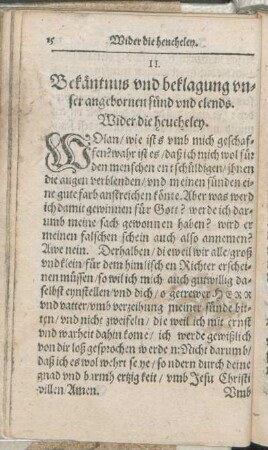 Wider die heucheley.
II.
Bekäntnus vnd beklagung vn-
ser angebornen sünd vnd elends.
Wider die heucheley.
WOlan / wie ists vmb mich geschaf-
fen? wahr ist es / daß ich mich wol für
den menschen entschüldigen / jhnen
die augen verblenden / vnd meinen sünden ei-
ne gute farb anstreichen könte. Aber was werd
ich damit gewinnen für Gott? werde ich da-
rumb meine sach gewonnen haben? wird er
meinen falschen schein auch also annemen?
Awe nein. Derhalben / die weil wir alle / groß
vnd klein / für dem himlischen Richter erschei-
nen müssen / so wil ich mich auch gutwillig da-
selbst eynstellen / vnd dich / o getrewer HERR
vnd vatter / vmb verzeihung meiner sünde bit-
ten / vnd nicht zweifeln / die weil ich mit ernst
vnd warheit dahin kome / ich werde gewißlich
von dir loß gesprochen werden: Nicht darumb /
daß ich es wol wehrt seye / sondern durch deine
gnad vnd barmhertzigkeit / vmb Jesu Christi
willen / Amen.
Vmb